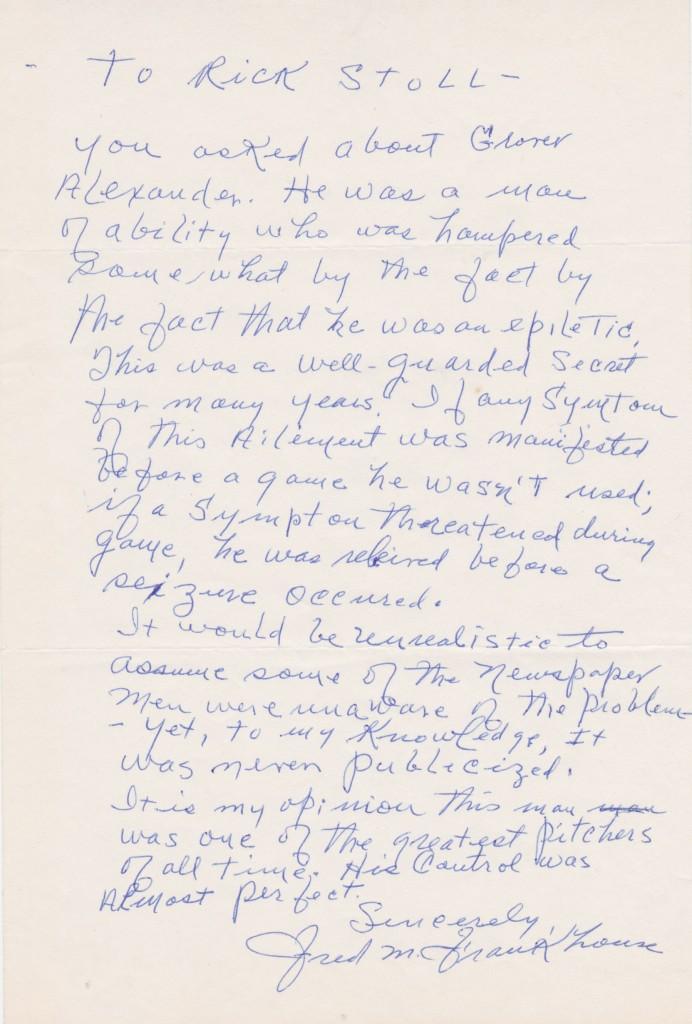 To Rick Stoll -
You asked about Grover
Alexander. He was a man
of ability who was hampered
somewhat by the fact by
the fact that he was an epiletic.
This was a well-guarded secret
for many years. If any symtom
of this ailement was manifested
before a game he wasn't used;
if a sympton threatened during
game, he was releived before a
seizure occured.
It would be unrealistic to
assume some of the newspaper
men were unaware of the problem -
- yet, to my knowledge, it
was never publicized.
It is my opinion this man man
was one of the greatest pitchers
of all time. His control was
almost perfect.
Sincerely,
Fred M. Frankhouse